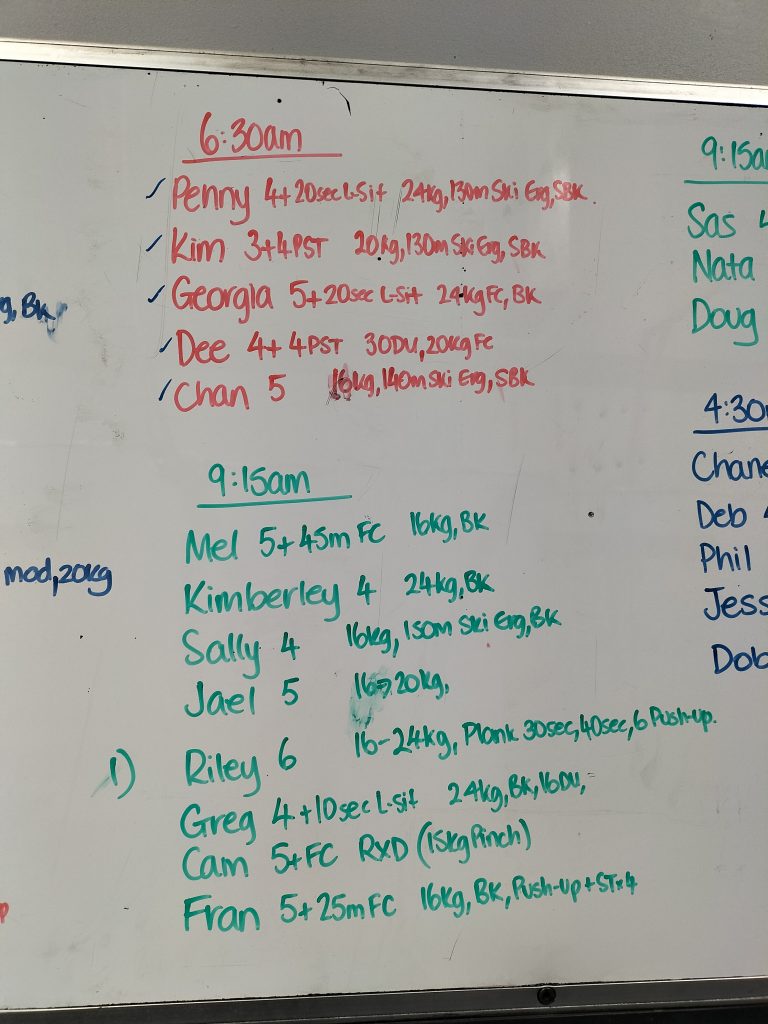 g, BK
mod, 20kg
6:30am
Penny 4+20sec L-Sit 24kg, 130m Ski Erg, SBK.
Kim 3+4PST 20kg, 130m Ski Erg, SBK
Georgia 5+20sec L-Sit 24kg FC, BK
Dee 4+4PST 30DU, 20kg FC
Chan 5 16kg, 140m Ski Erg, SBK
9:15am
Mel 5+45m FC 16kg, BK
Kimberley 4 24kg, BK
Sally 4 16kg, 150m Ski Erg, BK
Jael 5 16→20kg,
1) Riley 6 16-24kg, Plank 30sec, 40sec, 6 Push-up.
Greg 4+10sec L-sit 24kg, BK, 16DU,
Cam 5+FC RXD (15kg Pinch)
Fran 5+25m FC 16kg, BK, Push-up+ST×4
9:15a
Sas 4
Nata
Doug
4:30
Chane
Deb 4
Phil
Jess
Dob